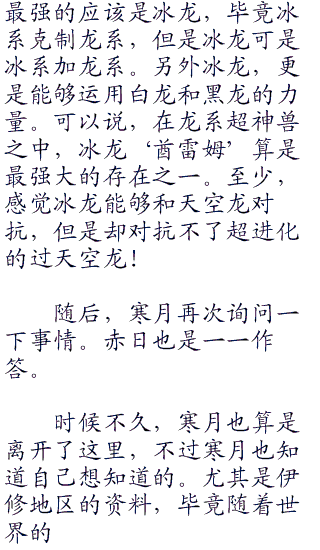 最强的应该是冰龙，毕竟冰
系克制龙系，但是冰龙可是
冰系加龙系。另外冰龙，更
是能够运用白龙和黑龙的力
量。可以说，在龙系超神兽
之中，冰龙‘酋雷姆’算是
最强大的存在之一。至少，
感觉冰龙能够和天空龙对
抗，但是却对抗不了超进化
的过天空龙！
随后，寒月再次询问一
下事情。赤日也是一一作
答。
时候不久，寒月也算是
离开了这里，不过寒月也知
道自己想知道的。尤其是伊
修地区的资料，毕竟随着世
界的